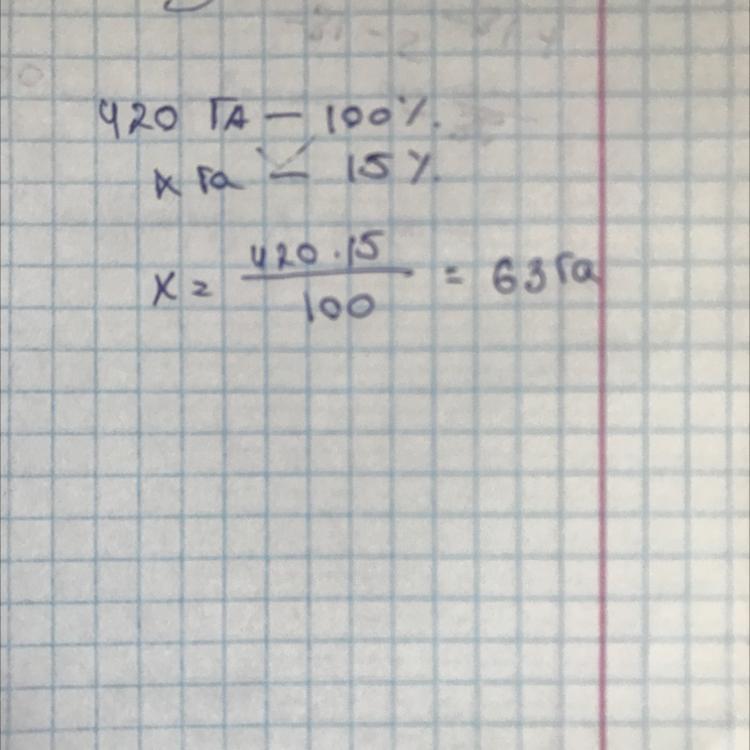 420 ГА — 100%.
x га — 15%.
x = 420·15 / 100 = 63 га